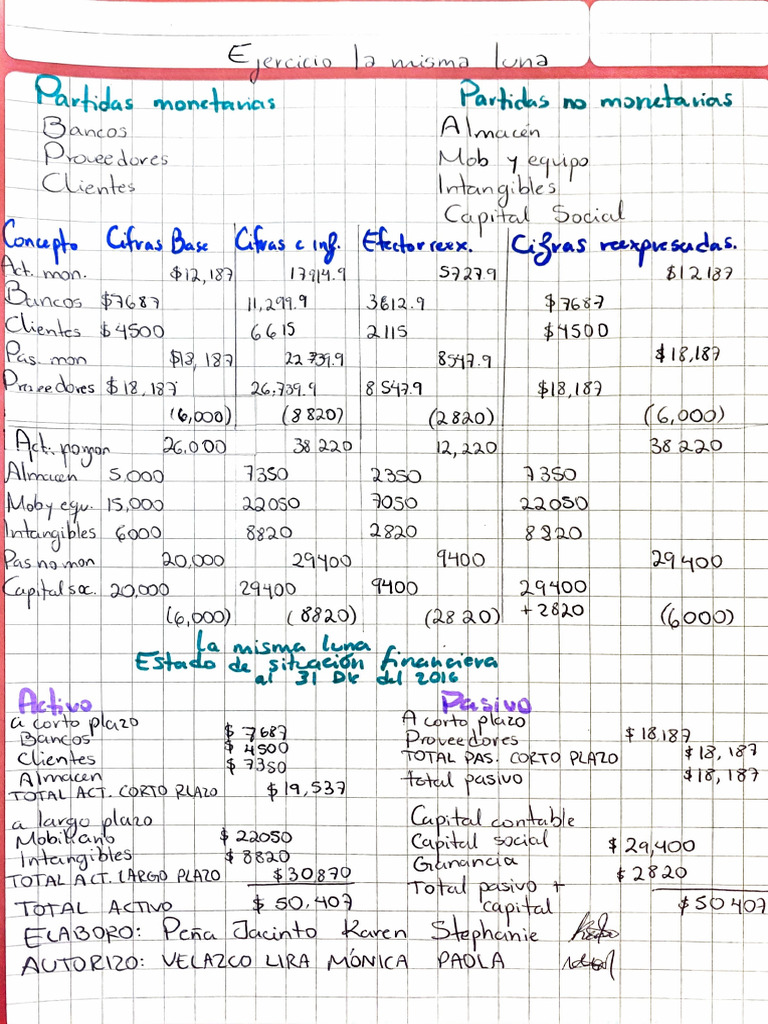 Ejercicio la misma luna
Partidas monetarias Partidas no monetarias
Bancos Almacén
Proveedores Mob y equipo
Clientes Intangibles
Capital Social
Concepto Cifras Base Cifras c inf. Efector reex. Cifras reexpresadas.
Act. mon. $12,187 17914.9 5727.9 $12187
Bancos $7687 11,299.9 3612.9 $7687
Clientes $4500 6615 2115 $4500
Pas. mon $18,187 22739.9 8547.9 $18,187
Proveedores $18,187 26,739.9 8547.9 $18,187
(6,000) (8820) (2820) (6,000)
Act. no mon 26,000 38220 12,220 38220
Almacen 5,000 7350 2350 7350
Mob y equ. 15,000 22050 7050 22050
Intangibles 6000 8820 2820 8820
Pas no mon 20,000 29400 9400 29400
Capital soc. 20,000 29400 9400 29400
+2820
(6,000) (8820) (2820) (6000)
La misma luna
Estado de situación financiera
al 31 Dic del 2016
Activo Pasivo
a corto plazo A corto plazo
Bancos $7687 Proveedores $18,187
Clientes $4500 TOTAL PAS. CORTO PLAZO $18,187
Almacen $7350 total pasivo $18,187
TOTAL ACT. CORTO PLAZO $19,537
a largo plazo Capital contable
Mobiliario $22050 Capital social $29,400
Intangibles $8820 Ganancia $2820
TOTAL ACT. LARGO PLAZO $30,870 Total pasivo +
TOTAL ACTIVO $50,407 capital $50407
ELABORO: Peña Jacinto Karen Stephanie
AUTORIZO: VELAZCO LIRA MÓNICA PAOLA